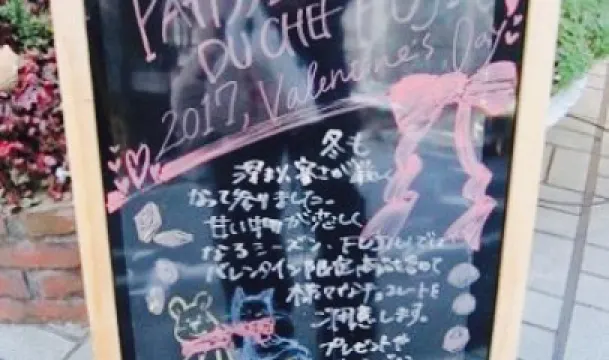 PATISS
DU CHEF FUJI
2017, Valentine's Day
冬も
深まり、寒さが厳しく
なって参りました。
甘い物が恋しく
なるシーズン。
バレンタイン限定商品も含めて
様々なチョコレートを
ご用意します。
プレゼントや